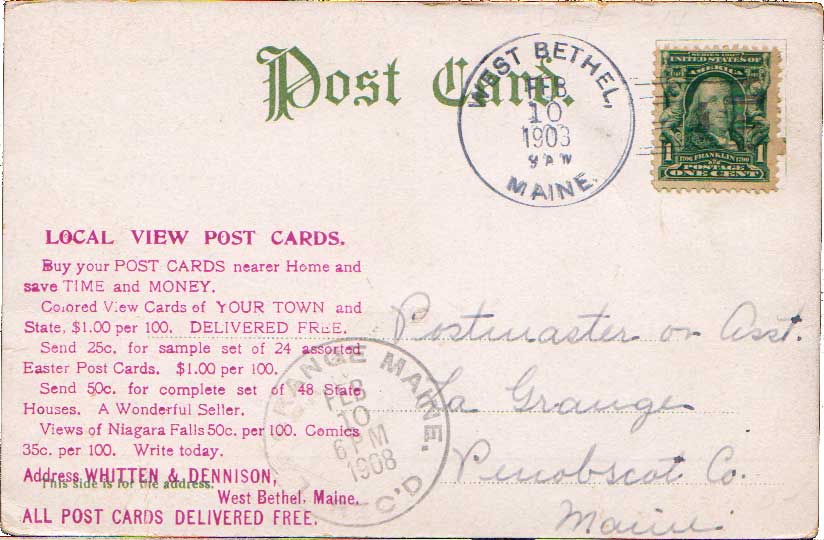 Post Card.
WEST BETHEL,
FEB
10
1903
9 AM
MAINE.
SERIES 1902
UNITED STATES OF
AMERICA
1706 FRANKLIN 1790
1 POSTAGE 1
ONE CENT
LOCAL VIEW POST CARDS.
Buy your POST CARDS nearer Home and
save TIME and MONEY.
Colored View Cards of YOUR TOWN and
State, $1.00 per 100. DELIVERED FREE.
Send 25c. for sample set of 24 assorted
Easter Post Cards. $1.00 per 100.
Send 50c. for complete set of 48 State
Houses. A Wonderful Seller.
Views of Niagara Falls 50c. per 100. Comics
35c. per 100. Write today.
Address WHITTEN & DENNISON,
This side is for the address.
West Bethel, Maine.
ALL POST CARDS DELIVERED FREE.
GRANGE MAINE.
FEB
10
6 PM
1908
C'D
Postmaster or Asst.
La Grange
Penobscot Co.
Maine